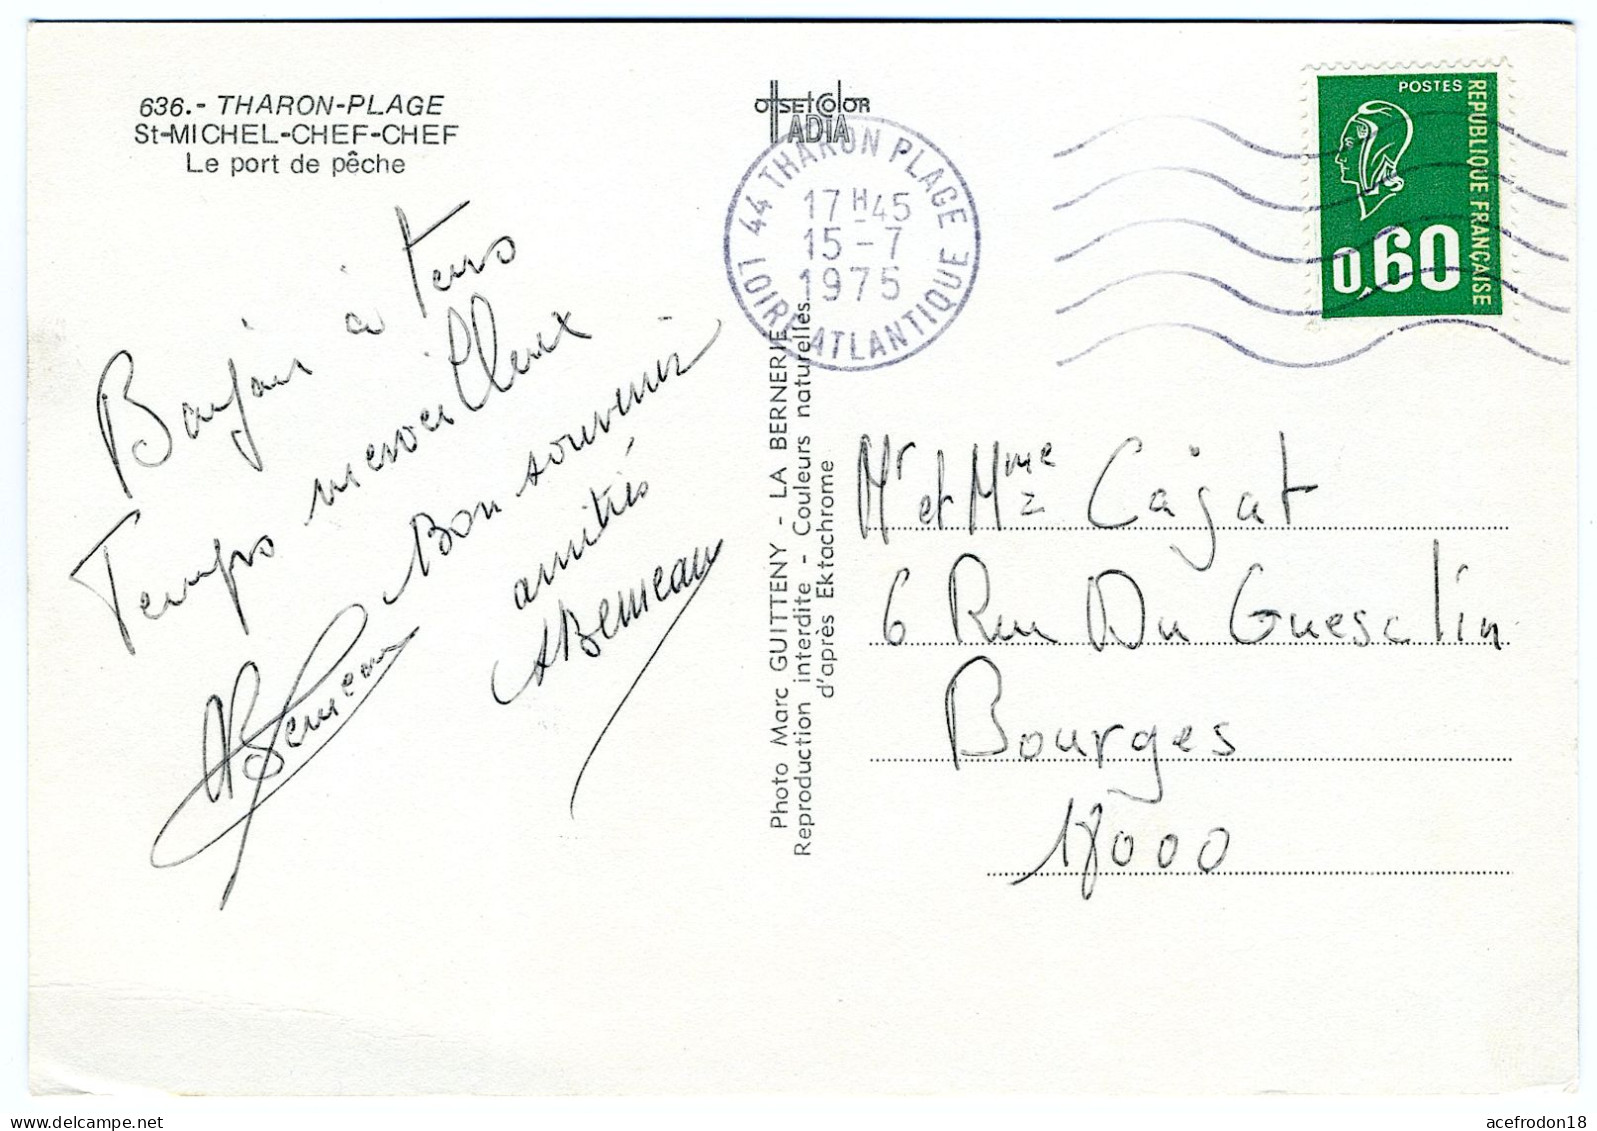 636.- THARON-PLAGE
St-MICHEL-CHEF-CHEF
Le port de pêche
Bonjour à tous
Temps merveilleux
Bon souvenir
amitiés
ABerneau
OFFSET COLOR
ADIA
44 THARON PLAGE
17H45
15-7
1975
LOIRE ATLANTIQUE
POSTES
REPUBLIQUE FRANÇAISE
0,60
Photo Marc GUITTENY - LA BERNERIE
Reproduction interdite - Couleurs naturelles
d'après Ektachrome
Mr et Mme Cajat
6 Rue Du Guesclin
Bourges
18000
acefrodon18